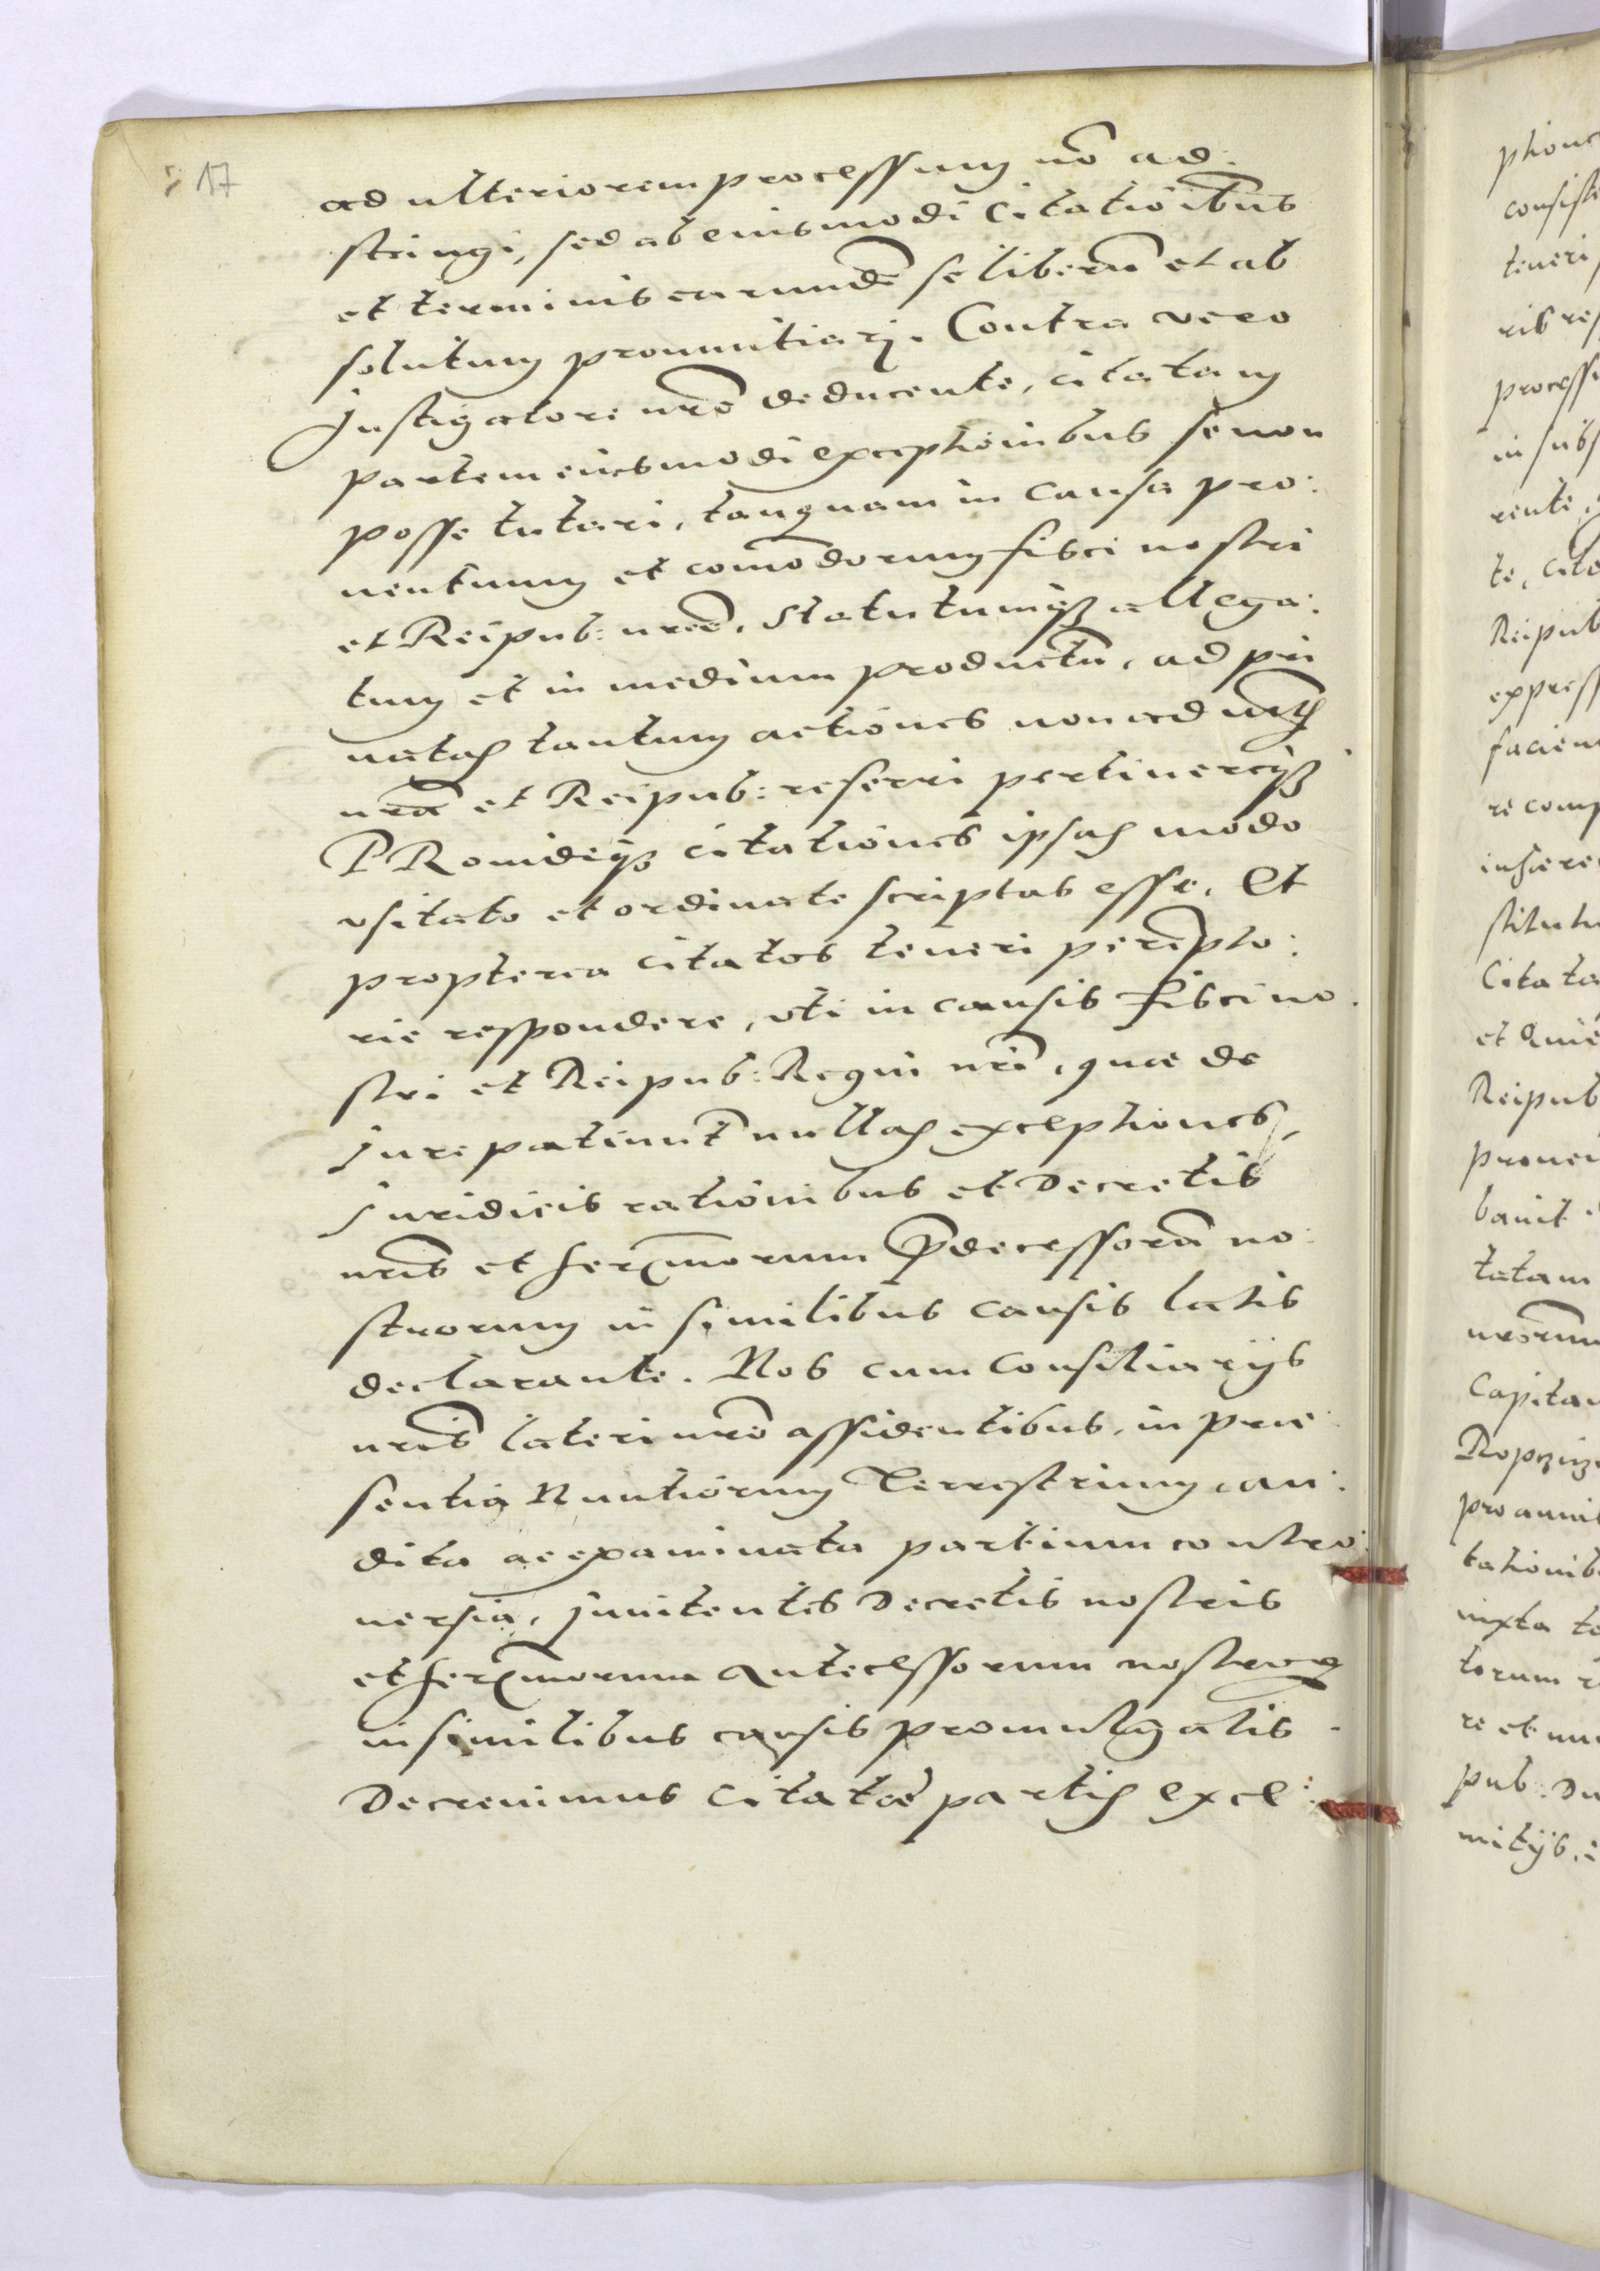 17
ad ulteriorem processum nō ad:
stringi, sed ab eiusmodi Citatiōibus
et terminis earundē se liberū et ab
solutum pronuntiarj. Contra vero
Instigatore nrō deducente, citatam
partem eiusmodi exceptionibus se non
posse tutari, tanquam in causa pro:
uentuum et comōdorum fisci nostri
et Reipub: nrāe, Statutumq3 allega:
tum et in medium productū, ad pri
uatas tantum actiones non ad
nrā et Reipub: referri pertinereq3
PRouideq3 citationes ipsas modo
vsitato et ordinate scriptas esse, Et
propterea citatos teneri perēpto:
rie respondere, vti in causis fisci no:
stri et Reipub: Regni nrī, quae de
Jure patiunt̄ nullas exceptiones,
Juridicis rationibus et Decretis
nrīs et Sermorum P̄decessorū no:
strorum in similibus causis latis
declarante. Nos cum Consiliarijs
nrīs lateri nrō assidentibus, in prae
sentia Nuntiorum Terrestrium, au:
dita ac examinata partium contro:
uersia, jnnitentes Decretis nostris
et Sermorum Antecessorum nostrorum
in similibus causis promulgatis.
Decreuimus Citatae partis exce:
phone
consist
teneri
ris res
processu
in subs
rente,
te, cita
Reipub
express
facien
re comp
inhaere
stitutu
Citata
et
Reipub
proue
banit
tatam
nrōrum
Capitan

pro annis
tationib
iuxta te
torum
re et
pub: Du
mitijs,